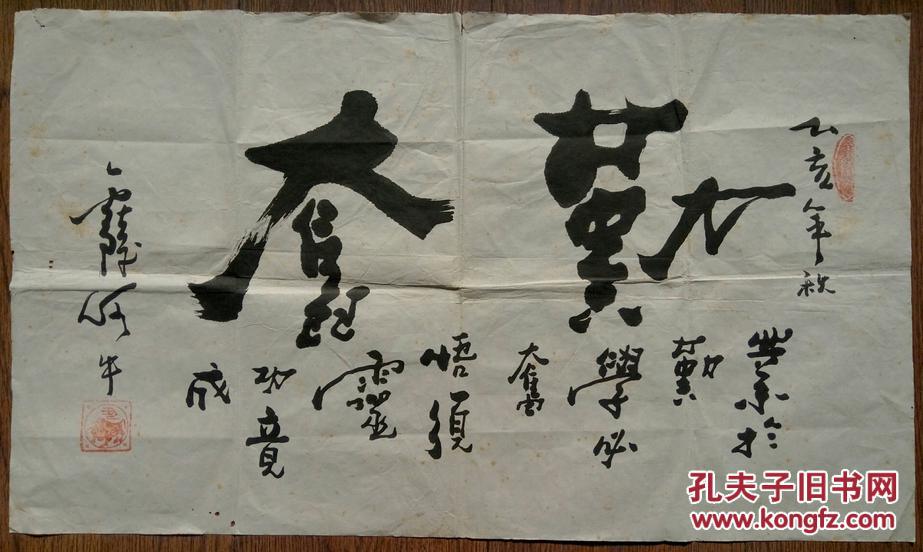 乙亥年秋
勤奮
業於
勤
學必
奮
悟須
靈
功竟
成
阿牛
孔夫子旧书网
www.kongfz.com